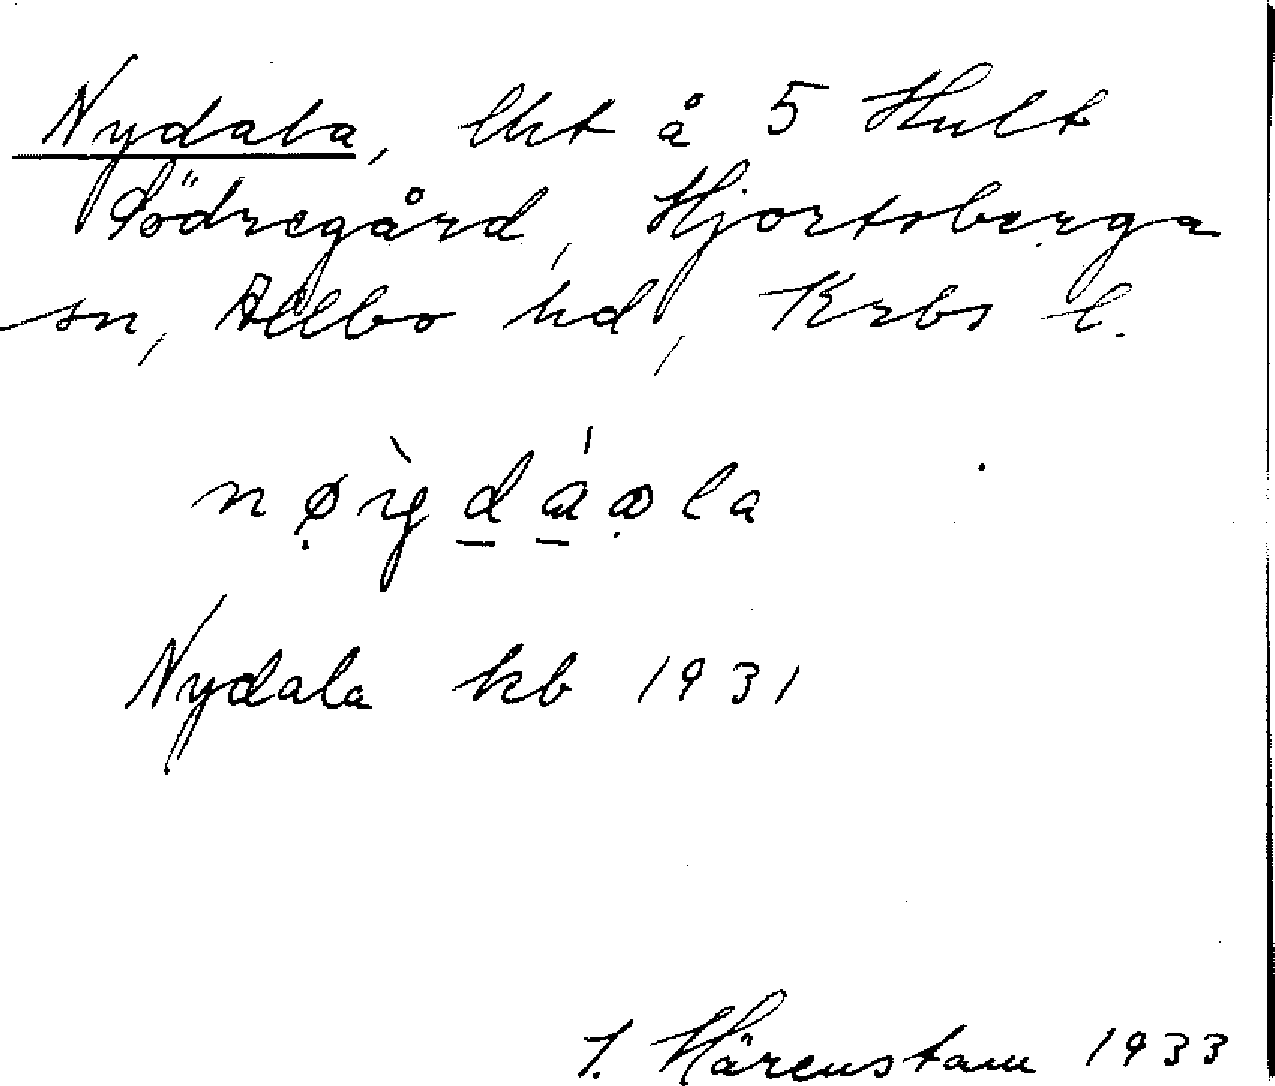 Nydala, lht å 5 Hult
Södregård, Hjortsberga
sn, Allbo hd, Krbs l.
Nydala kb 1931
J. Hårenstam 1933